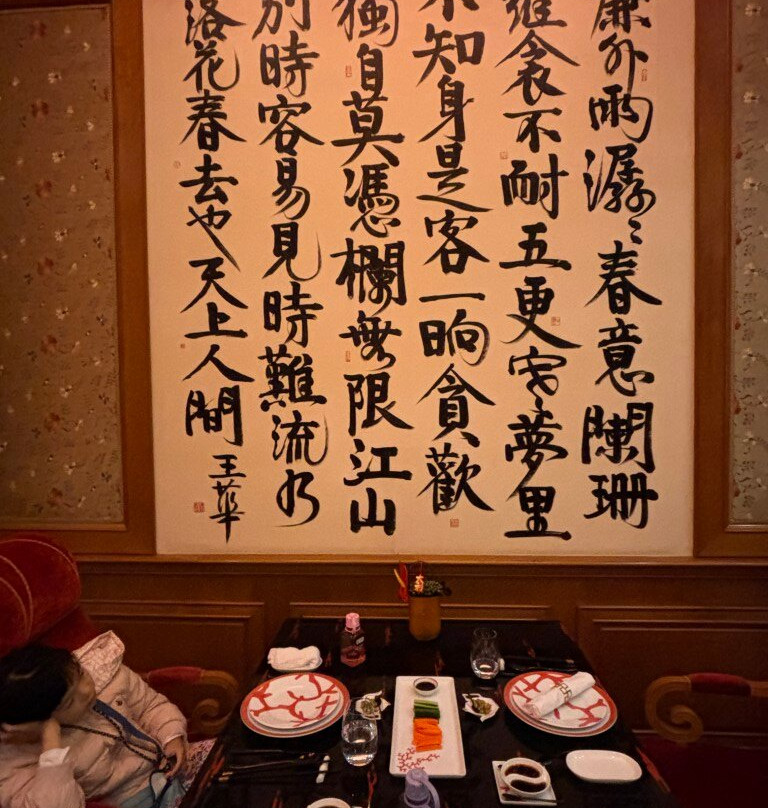 簾外雨潺々春意闌珊
羅衾不耐五更寒夢里
不知身是客一晌貪歡
獨自莫憑欄無限江山
別時容易見時難流水
落花春去也天上人間
王華